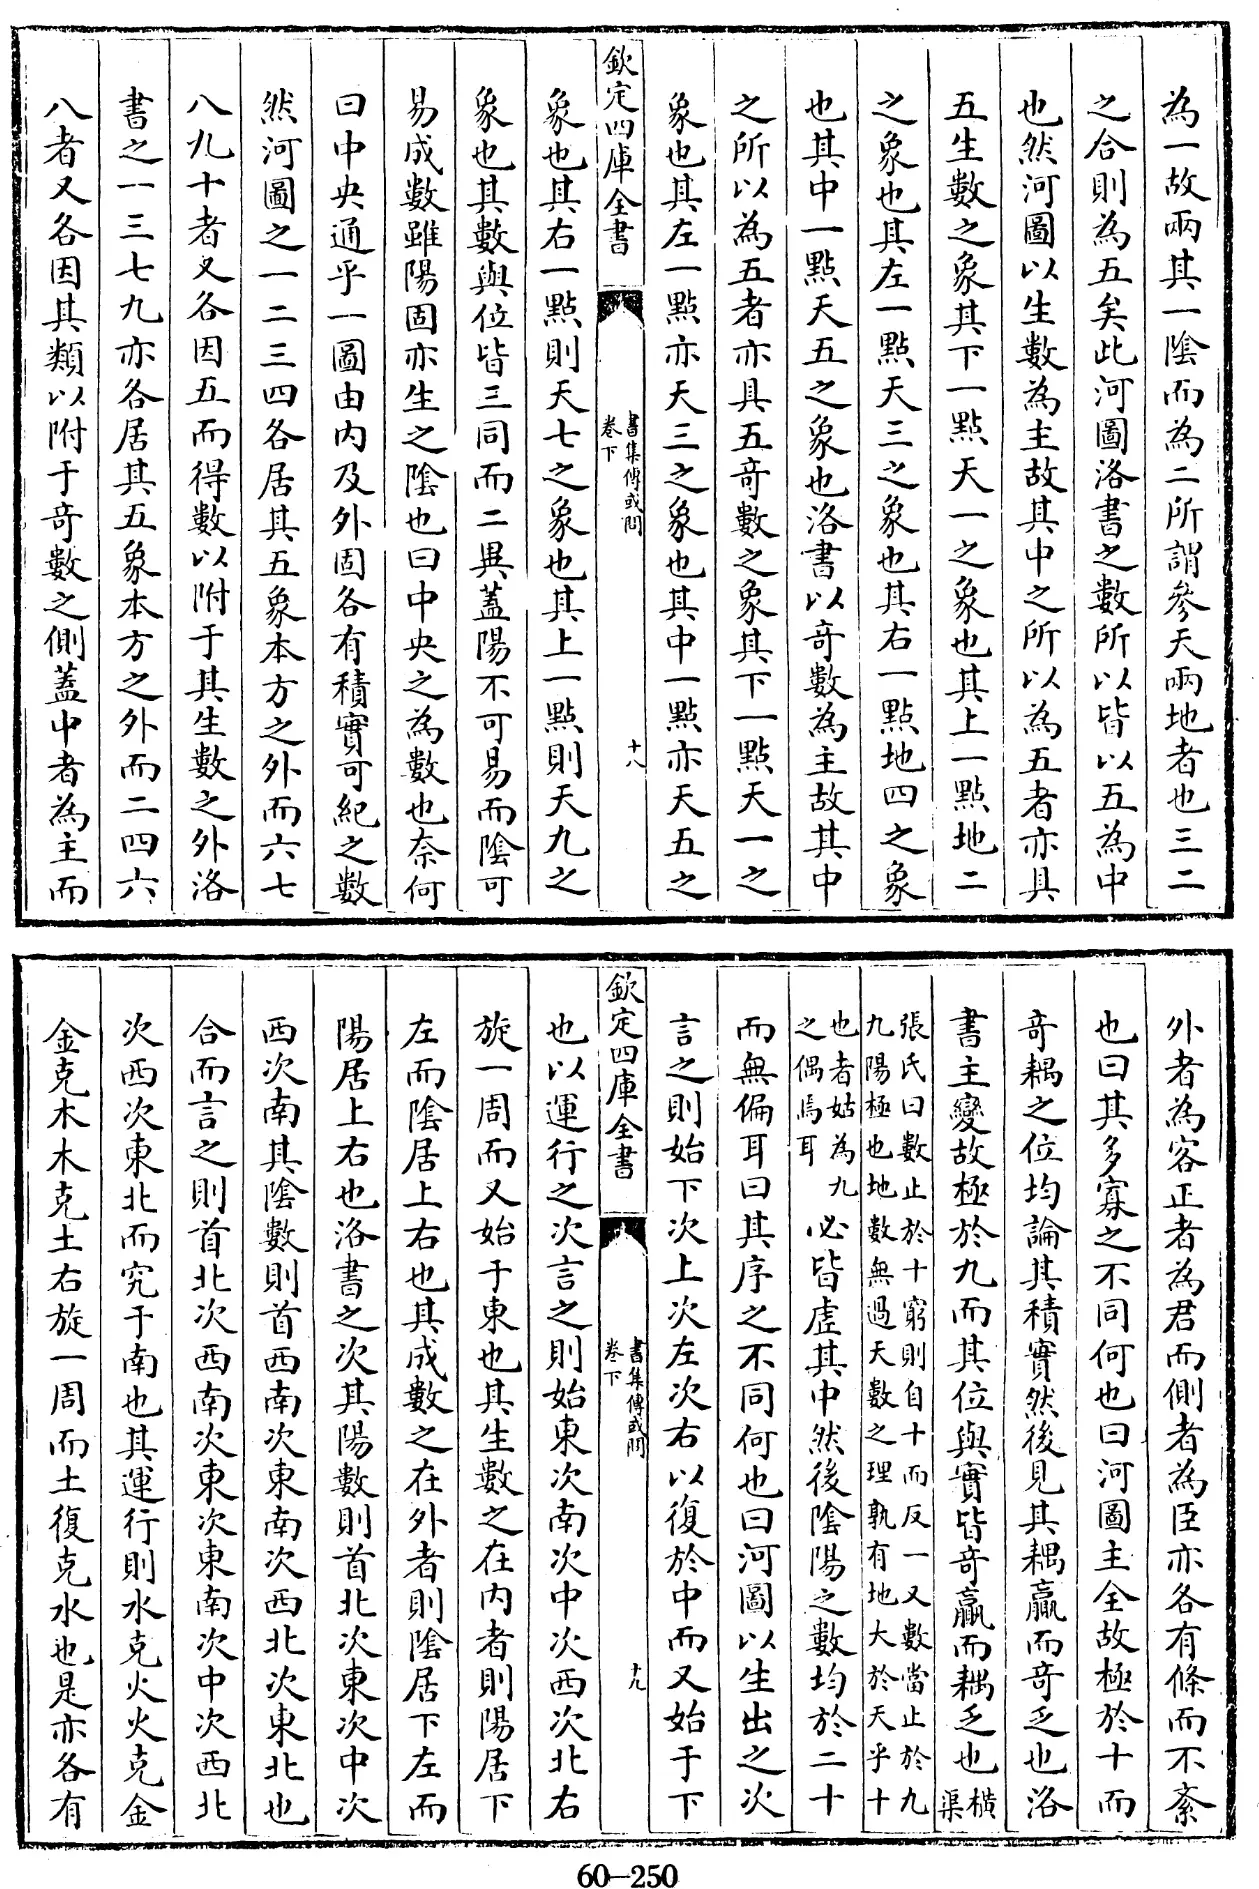 為一故兩其一陰而為二所謂參天兩地者也三二
之合則為五矣此河圖洛書之數所以皆以五為中
也然河圖以生數為主故其中之所以為五者亦具
五生數之象其下一點天一之象也其上一點地二
之象也其左一點天三之象也其右一點地四之象
也其中一點天五之象也洛書以奇數為主故其中
之所以為五者亦具五奇數之象其下一點天一之
象也其左一點亦天三之象也其中一點亦天五之
欽定四庫全書
書集傳或問
卷下
十八
象也其右一點則天七之象也其上一點則天九之
象也其數與位皆三同而二異蓋陽不可易而陰可
易成數雖陽固亦生之陰也曰中央之為數也奈何
曰中央通乎一圖由內及外固各有積實可紀之數
然河圖之一二三四各居其五象本方之外而六七
八九十者又各因五而得數以附于其生數之外洛
書之一三七九亦各居其五象本方之外而二四六
八者又各因其類以附于奇數之側蓋中者為主而
外者為客正者為君而側者為臣亦各有條而不紊
也曰其多寡之不同何也曰河圖主全故極於十而
奇耦之位均論其積實然後見其耦贏而奇乏也洛
書主變故極於九而其位與實皆奇贏而耦乏也橫渠
張氏曰數止於十窮則自十而反一又數當止於九
九陽極也地數無過天數之理孰有地大於天乎十
也者姑為九
之偶焉耳
必皆虛其中然後陰陽之數均於二十
而無偏耳曰其序之不同何也曰河圖以生出之次
言之則始下次上次左次右以復於中而又始于下
欽定四庫全書
書集傳或問
卷下
十九
也以運行之次言之則始東次南次中次西次北右
旋一周而又始于東也其生數之在內者則陽居下
左而陰居上右也其成數之在外者則陰居下左而
陽居上右也洛書之次其陽數則首北次東次中次
西次南其陰數則首西南次東南次西北次東北也
合而言之則首北次西南次東次東南次中次西北
次西次東北而究于南也其運行則水克火火克金
金克木木克土右旋一周而土復克水也是亦各有
60-250